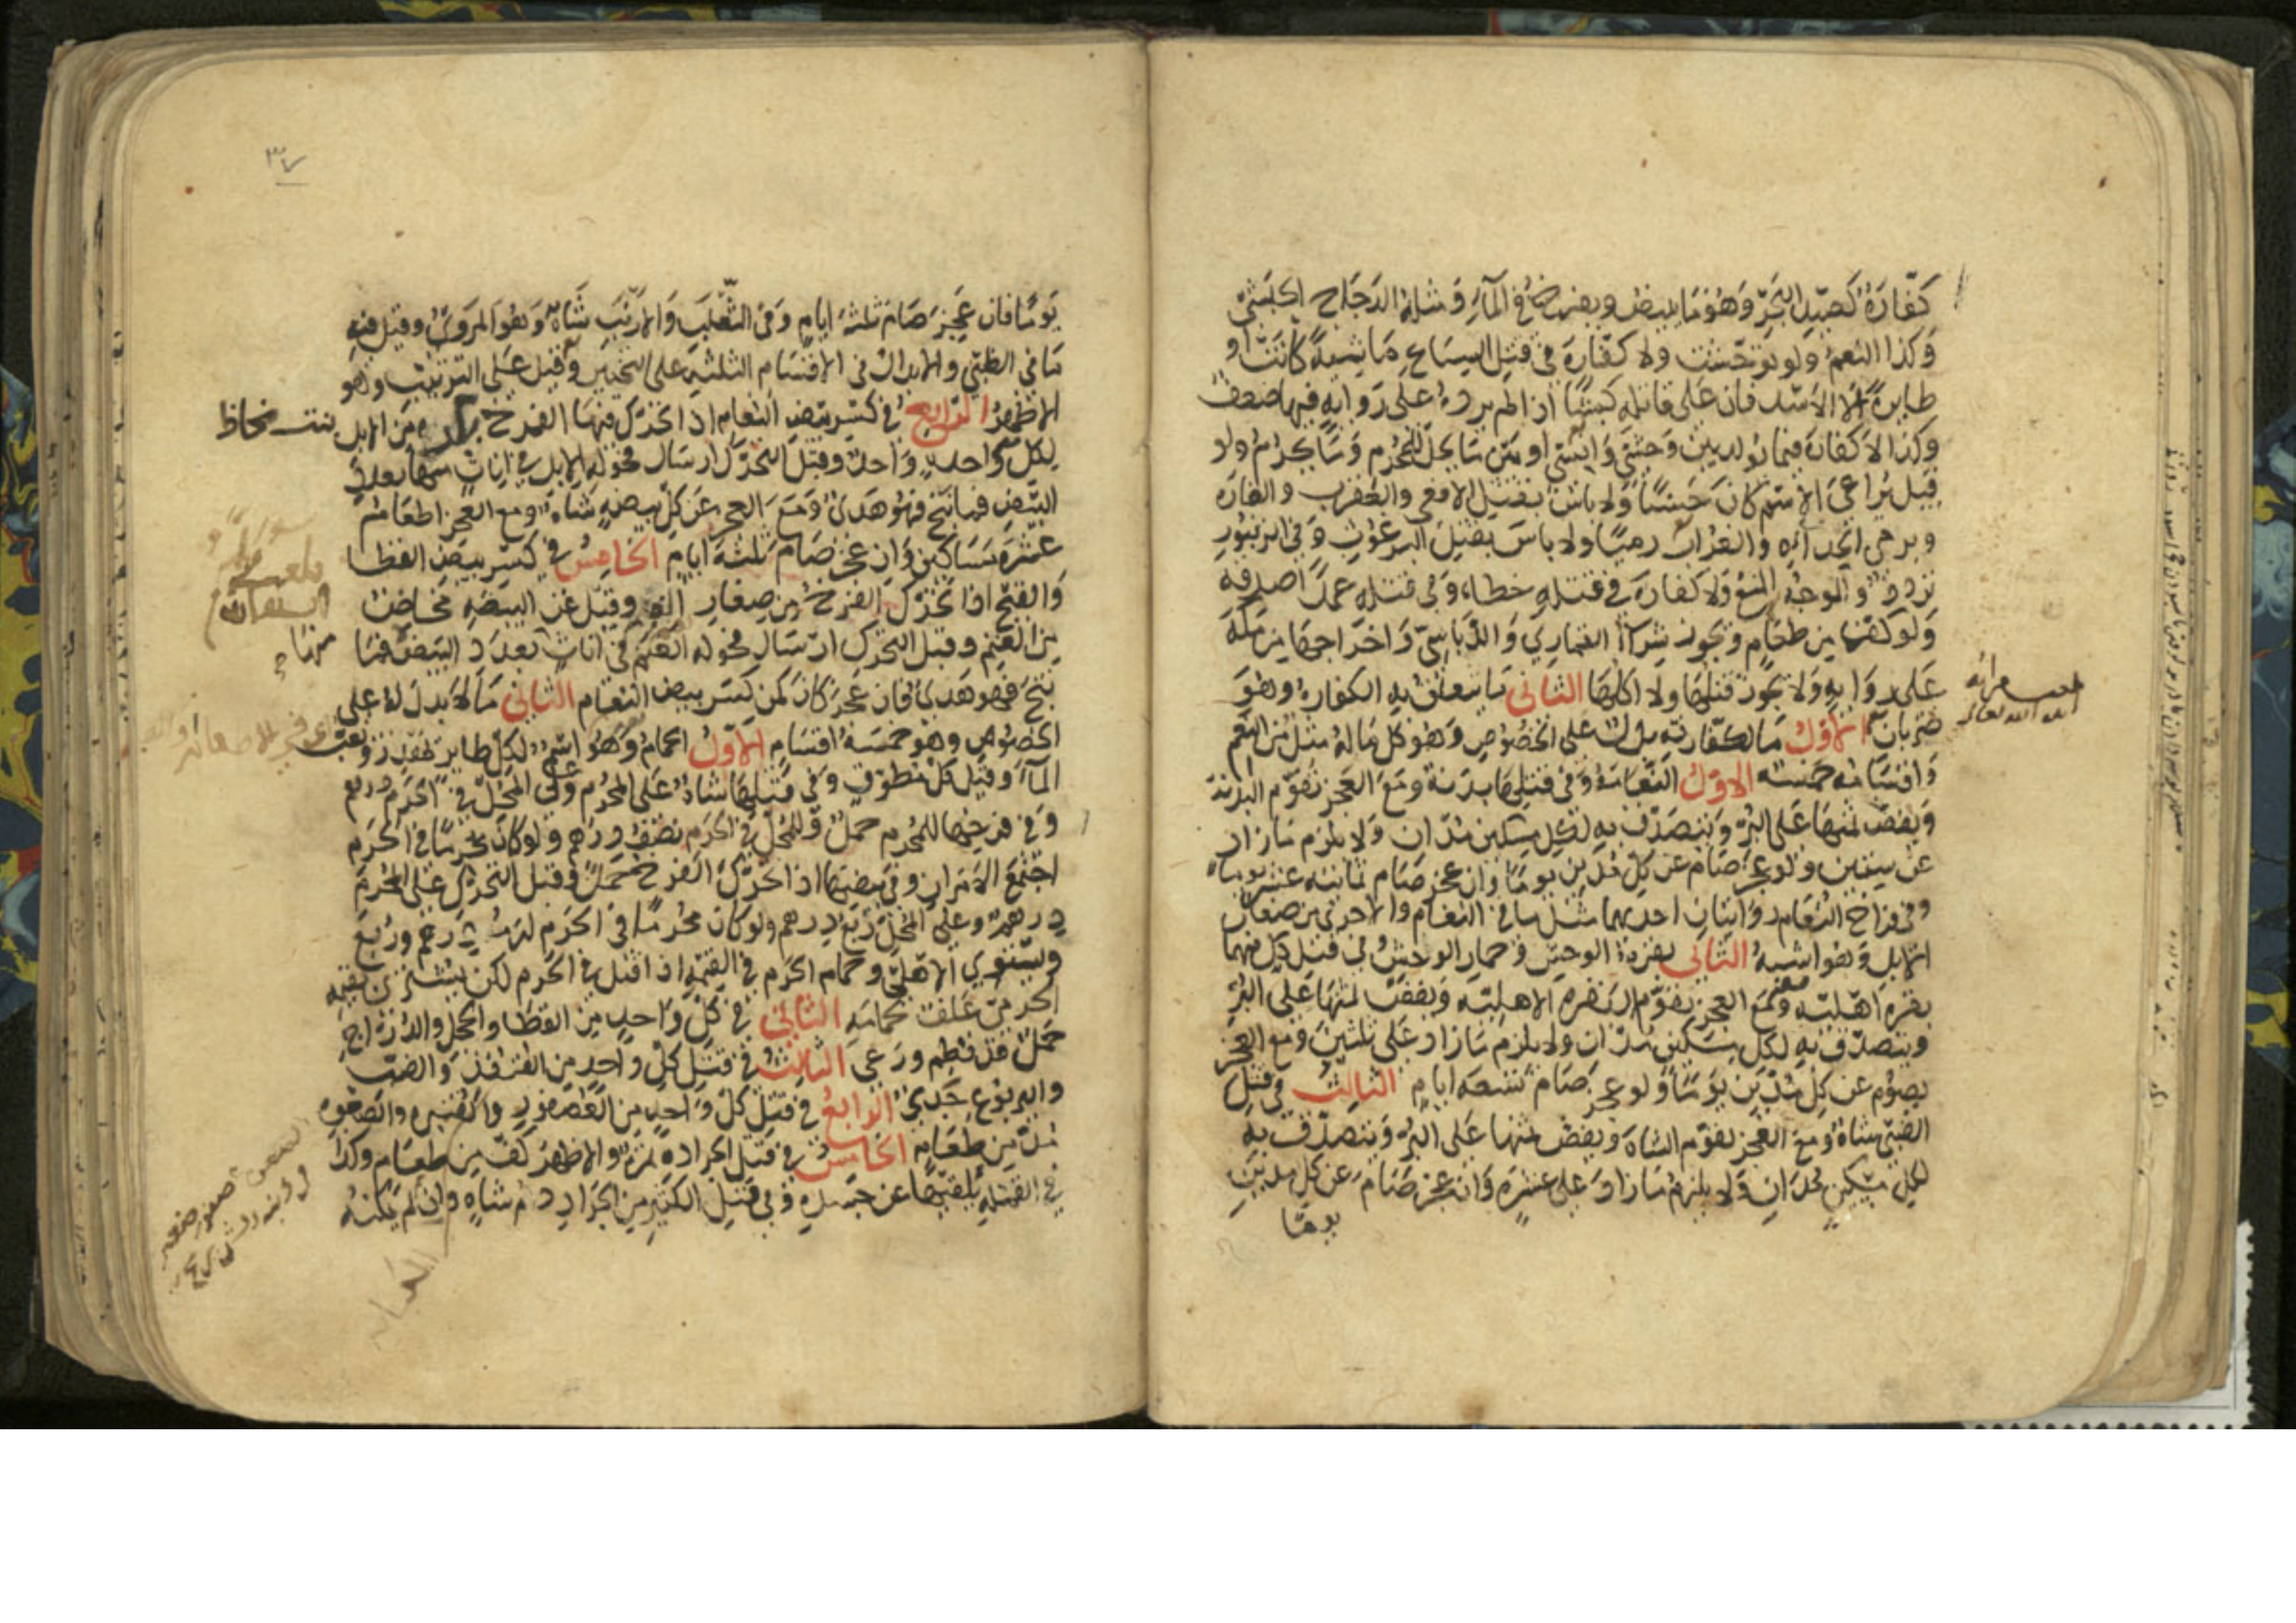 كفارة كصيد البحر وهو ما يبيض ويفرخ في المآء ومثله الدجاج الحبشي
وكذا النعم ولو توحشت ولا كفارة في قتل السباع ماشية كانت او
طايرة الا الاسد فان على قاتله كبشا اذا لم يرده على رواية فيها ضعف
وكذا لا كفارة فيما تولد بين وحشي وانسي او بين ما يحل للمحرم وما يحرم ولو
قيل يراعى الاسم كان حسنا ولا باس بقتل الافعى والعقرب والفارة
وبرمي الحدأة والغراب رميا ولا باس بقتل البرغوث وفي الزنبور
تردد والوجه المنع ولا كفارة في قتله خطاء وفي قتله عمدا صدقة
ولو كف من طعام ويجوز شراء القماري والدباسي واخراجها من مكة
على رواية ولا يجوز قتلها ولا اكلها الثاني ما يتعلق به الكفارة وهو
ضربان الاول ما لكفارته بدل على الخصوص وهو كل ما له مثل من النعم
واقسامه خمسة الاول النعامة وفي قتلها بدنة ومع العجز تقوم البدنة
ويفض ثمنها على البر ويتصدق به لكل مسكين مدان ولا يلزم ما زاد
عن ستين ولو عجز صام عن كل مدين يوما وان عجز صام ثمانية عشر يوما
وفي فراخ النعام روايتان احديهما مثل ما في النعام والاخرى من صغار
الابل وهو اشبه الثاني بقرة الوحش وحمار الوحش في قتل كل منهما
بقرة اهلية ومع العجز يقوم البقرة الاهلية ويفض ثمنها على البر
ويتصدق به لكل مسكين مدان ولا يلزم ما زاد على ثلثين ومع العجز
يصوم عن كل مدين يوما ولو عجز صام تسعة ايام الثالث في قتل
الظبي شاة ومع العجز يقوم الشاة ويفض ثمنها على البر ويتصدق به
لكل مسكين مدان ولا يلزم ما زاد على عشرة وان عجز صام عن كل مدين
يوما
٣٧
يوما فان عجز صام ثلثة ايام وفي الثعلب والارنب شاة وهو المروي وقيل فيه
ما في الظبي والابدال في الاقسام الثلثة على التخيير وقيل على الترتيب وهو
الاظهر الرابع في كسر بيض النعام اذا تحرك فيها الفرخ بكارة من الابل
لكل واحدة واحد وقبل التحرك ارسال فحولة الابل في اناث منها بعدد
البيض فما نتج فهو هدي ومع العجز عن كل بيضة شاة ومع العجز اطعام
عشرة مساكين وان عجز صام ثلثة ايام الخامس في كسر بيض القطا
والقبج اذا تحرك الفرخ من صغار الغنم وقيل عن البيضة مخاض
من الغنم وقبل التحرك ارسال فحولة الغنم في اناث بعدد البيض فما
نتج فهو هدي فان عجز كان كمن كسر بيض النعام الثاني ما لا بدل له على
الخصوص وهو خمسة اقسام الاول الحمام وهو اسم لكل طاير يهدر ويعب
المآء وقيل كل مطوق وفي قتلها شاة على المحرم وعلى المحل في الحرم درهم
وفي فرخها للمحرم حمل وللمحل في الحرم نصف درهم ولو كان محرما في الحرم
اجتمع الامران وفي بيضها اذا تحرك الفرخ حمل وقبل التحرك على المحرم
درهم وعلى المحل ربع درهم ولو كان محرما في الحرم لزمه درهم وربع
ويستوي الاهلي وحمام الحرم في القيمة اذا قتل في الحرم لكن يشترى بقيمة
الحرمي علف لحمامه الثاني في كل واحد من القطا والحجل والدراج
حمل قد فطم ورعى الثالث في قتل كل واحد من القنفذ والضب
واليربوع جدي الرابع في قتل كل واحد من العصفور والقنبرة والصعوة
مد من طعام الخامس في قتل الجرادة تمرة والاظهر كف من طعام وكذا
في القملة يلقيها عن جسده وفي قتل الكثير من الجراد دم شاة وان لم يمكنه